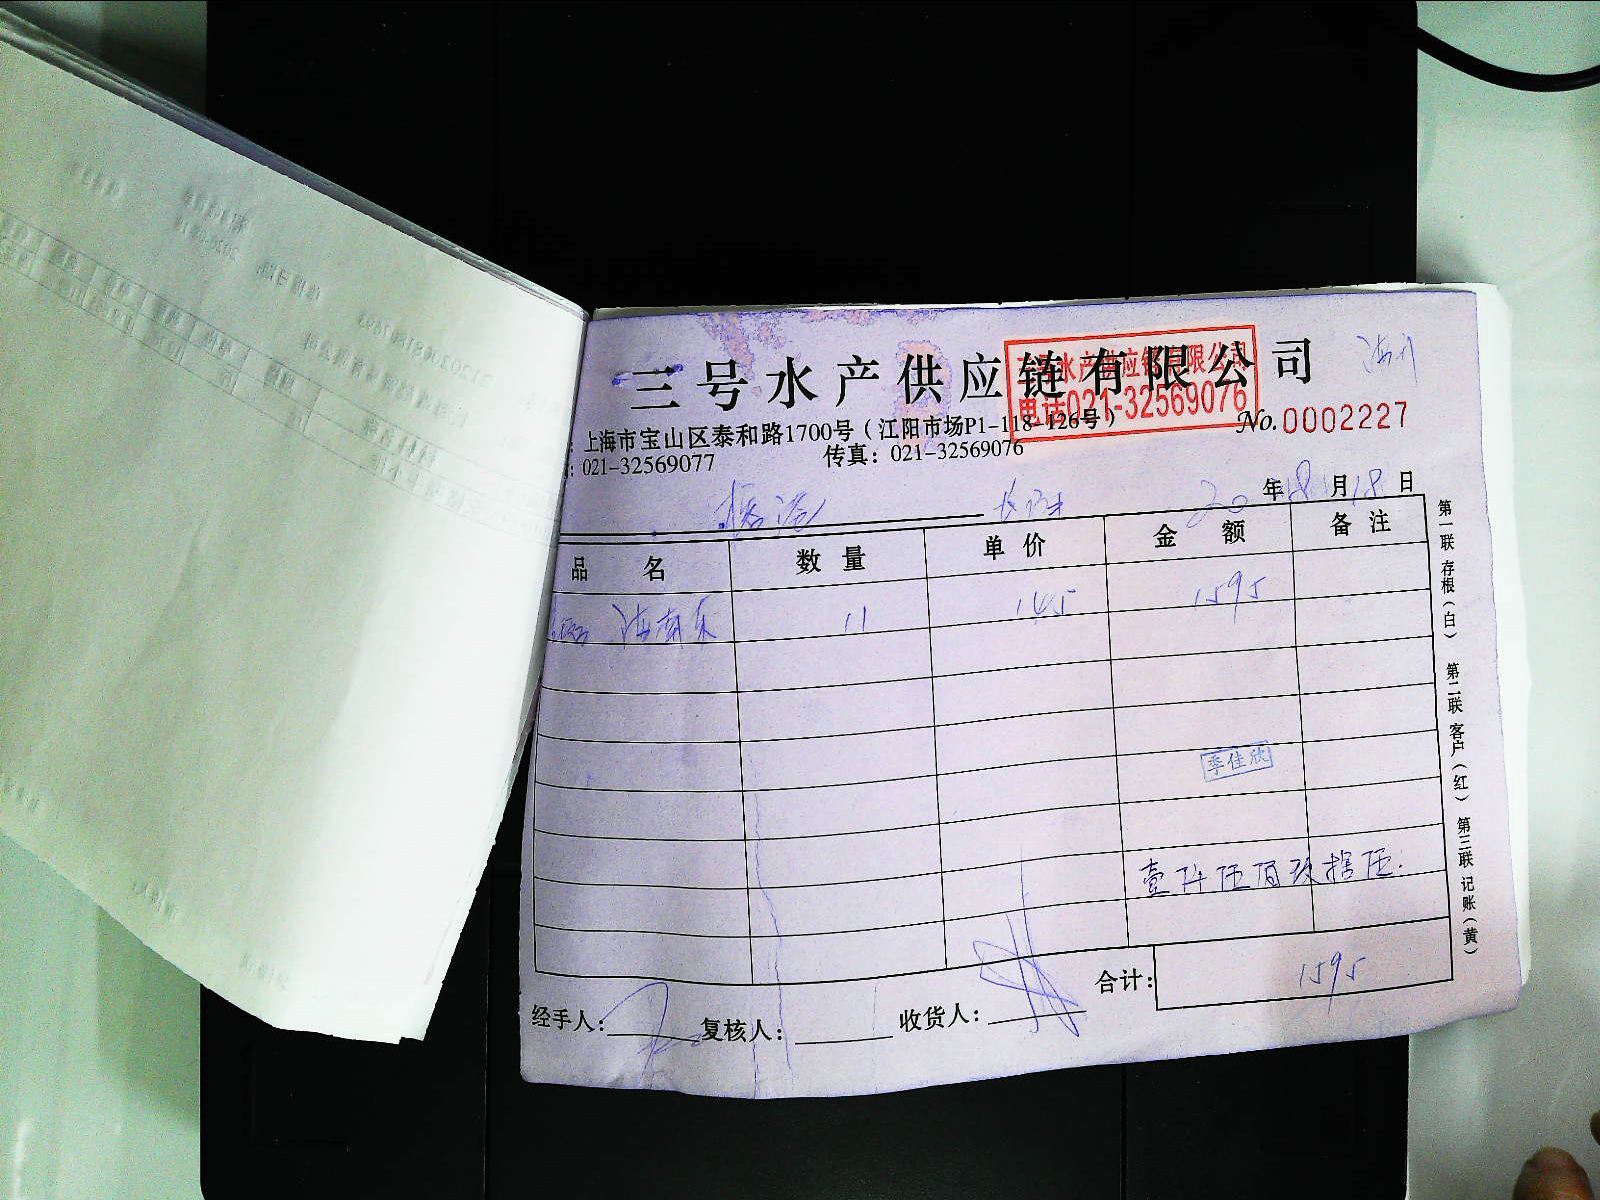 三号水产供应链有限公司
三号水产供应链有限公司
电话021-32569076
上海市宝山区泰和路1700号（江阳市场P1-118-126号）
No.0002227
: 021-32569077 传真：021-32569076
20年8月18日
品名 数量 单价 金额 备注
海南东 11 145 1595
季佳欣
壹仟伍佰玖拾伍
合计： 1595
经手人： 复核人： 收货人：
第一联 存根（白） 第二联 客户（红） 第三联 记账（黄）